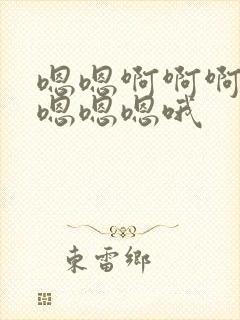 嗯嗯啊啊啊
嗯嗯嗯哦
东雷乡